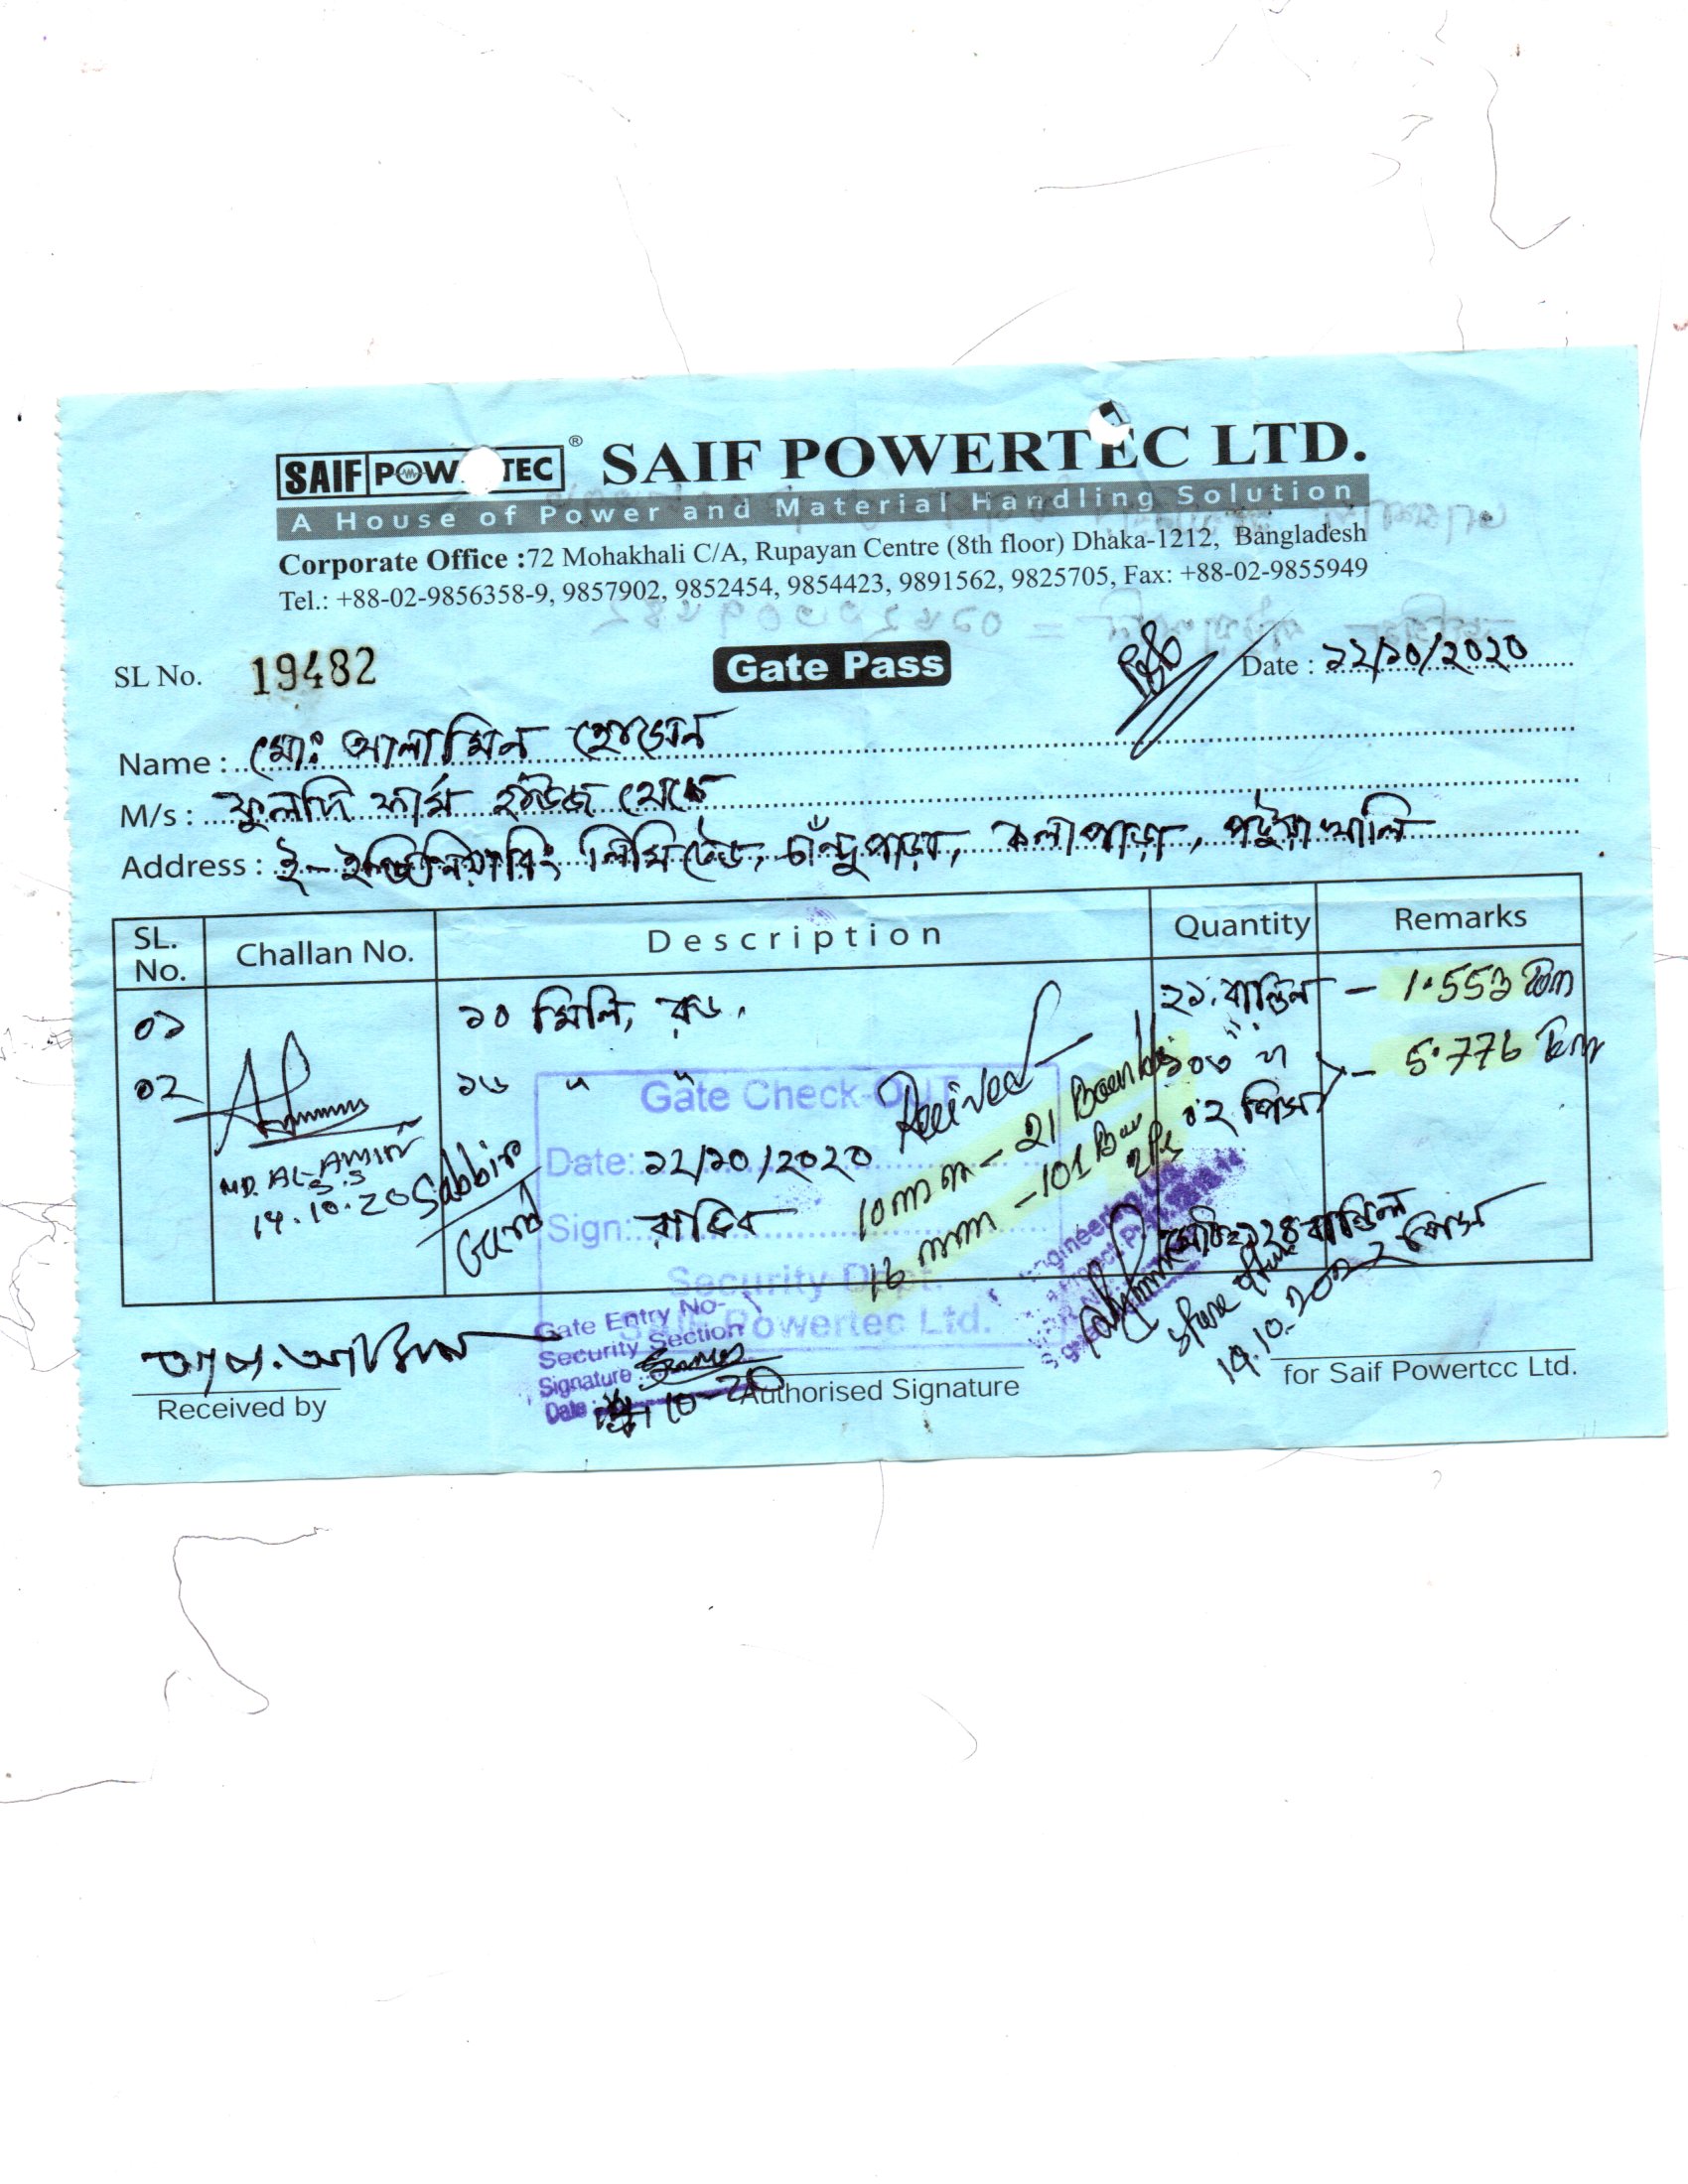 SAIF POW TEC ® SAIF POWERTEC LTD.
A House of Power and Material Handling Solution
Corporate Office :72 Mohakhali C/A, Rupayan Centre (8th floor) Dhaka-1212, Bangladesh
Tel.: +88-02-9856358-9, 9857902, 9852454, 9854423, 9891562, 9825705, Fax: +88-02-9855949
SL No. 19482 Gate Pass Date : ১২/১০/২০২০
Name : মোঃ আলামিন হোসেন
M/s : ফুলদি ফার্ম হাউজ থেকে
Address : ই-ইঞ্জিনিয়ারিং লিমিটেড, চাঁন্দুপাড়া, কলাপাড়া, পটুয়াখালি
SL. No. Challan No. Description Quantity Remarks
০১ ১০ মিলি, রড. ২১ বান্ডিল - 1.553 Ton
০২ ১৬ " " ১০৩ " - 5.776 Ton
০২ পিস
Gate Check-OUT
Received
Date: ১২/১০/২০২০
Sign:
Security Dept.
SAIF Powertec Ltd.
10 mm - 21
16 mm - 101
MD. AL-AMIN
S.S
14.10.20
Sabbir
Guard
১২৪ বান্ডিল
২ পিস
Gate Entry No-
Security Section
Signature :
Date :
Received by Authorised Signature for Saif Powertcc Ltd.